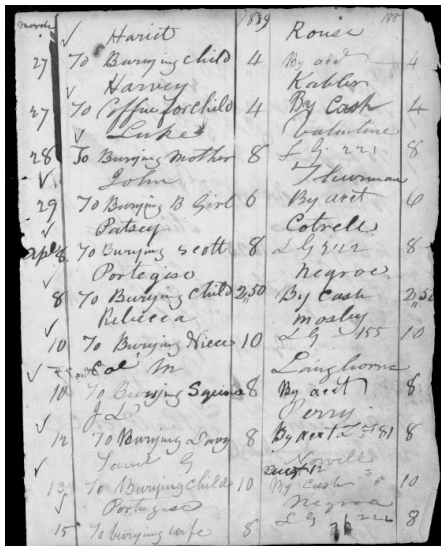 March 1839 188
✓ Hariet Rouse
27 To Burying Child 4 By acct 4
✓ Harvey Kabler
27 To Coffin for child 4 By Cash 4
✓ Luke Valentine
28 To Burying Mother 8 L G 221 8
✓ John Thurman
29 To Burying B Girl 6 By acct 6
✓ Patsey Cotrell
Apl 8 To Burying Scott 8 L G 222 8
✓ Portegise Negroe
8 To Burying Child 2,50 By Cash 2,50
✓ Rebecca Mosley
10 To Burying Niece 10 L G 155 10
✓ Col M Langhorne
10 To Burying Squire 8 By acct 8
✓ J L Perry
12 To Burying Davy 8 By acct 81 8
✓ G Norvell
13 To Burying Child 10 By Cash 10
✓ Portegise Negroe
15 To burying wife 8 L G 222 8